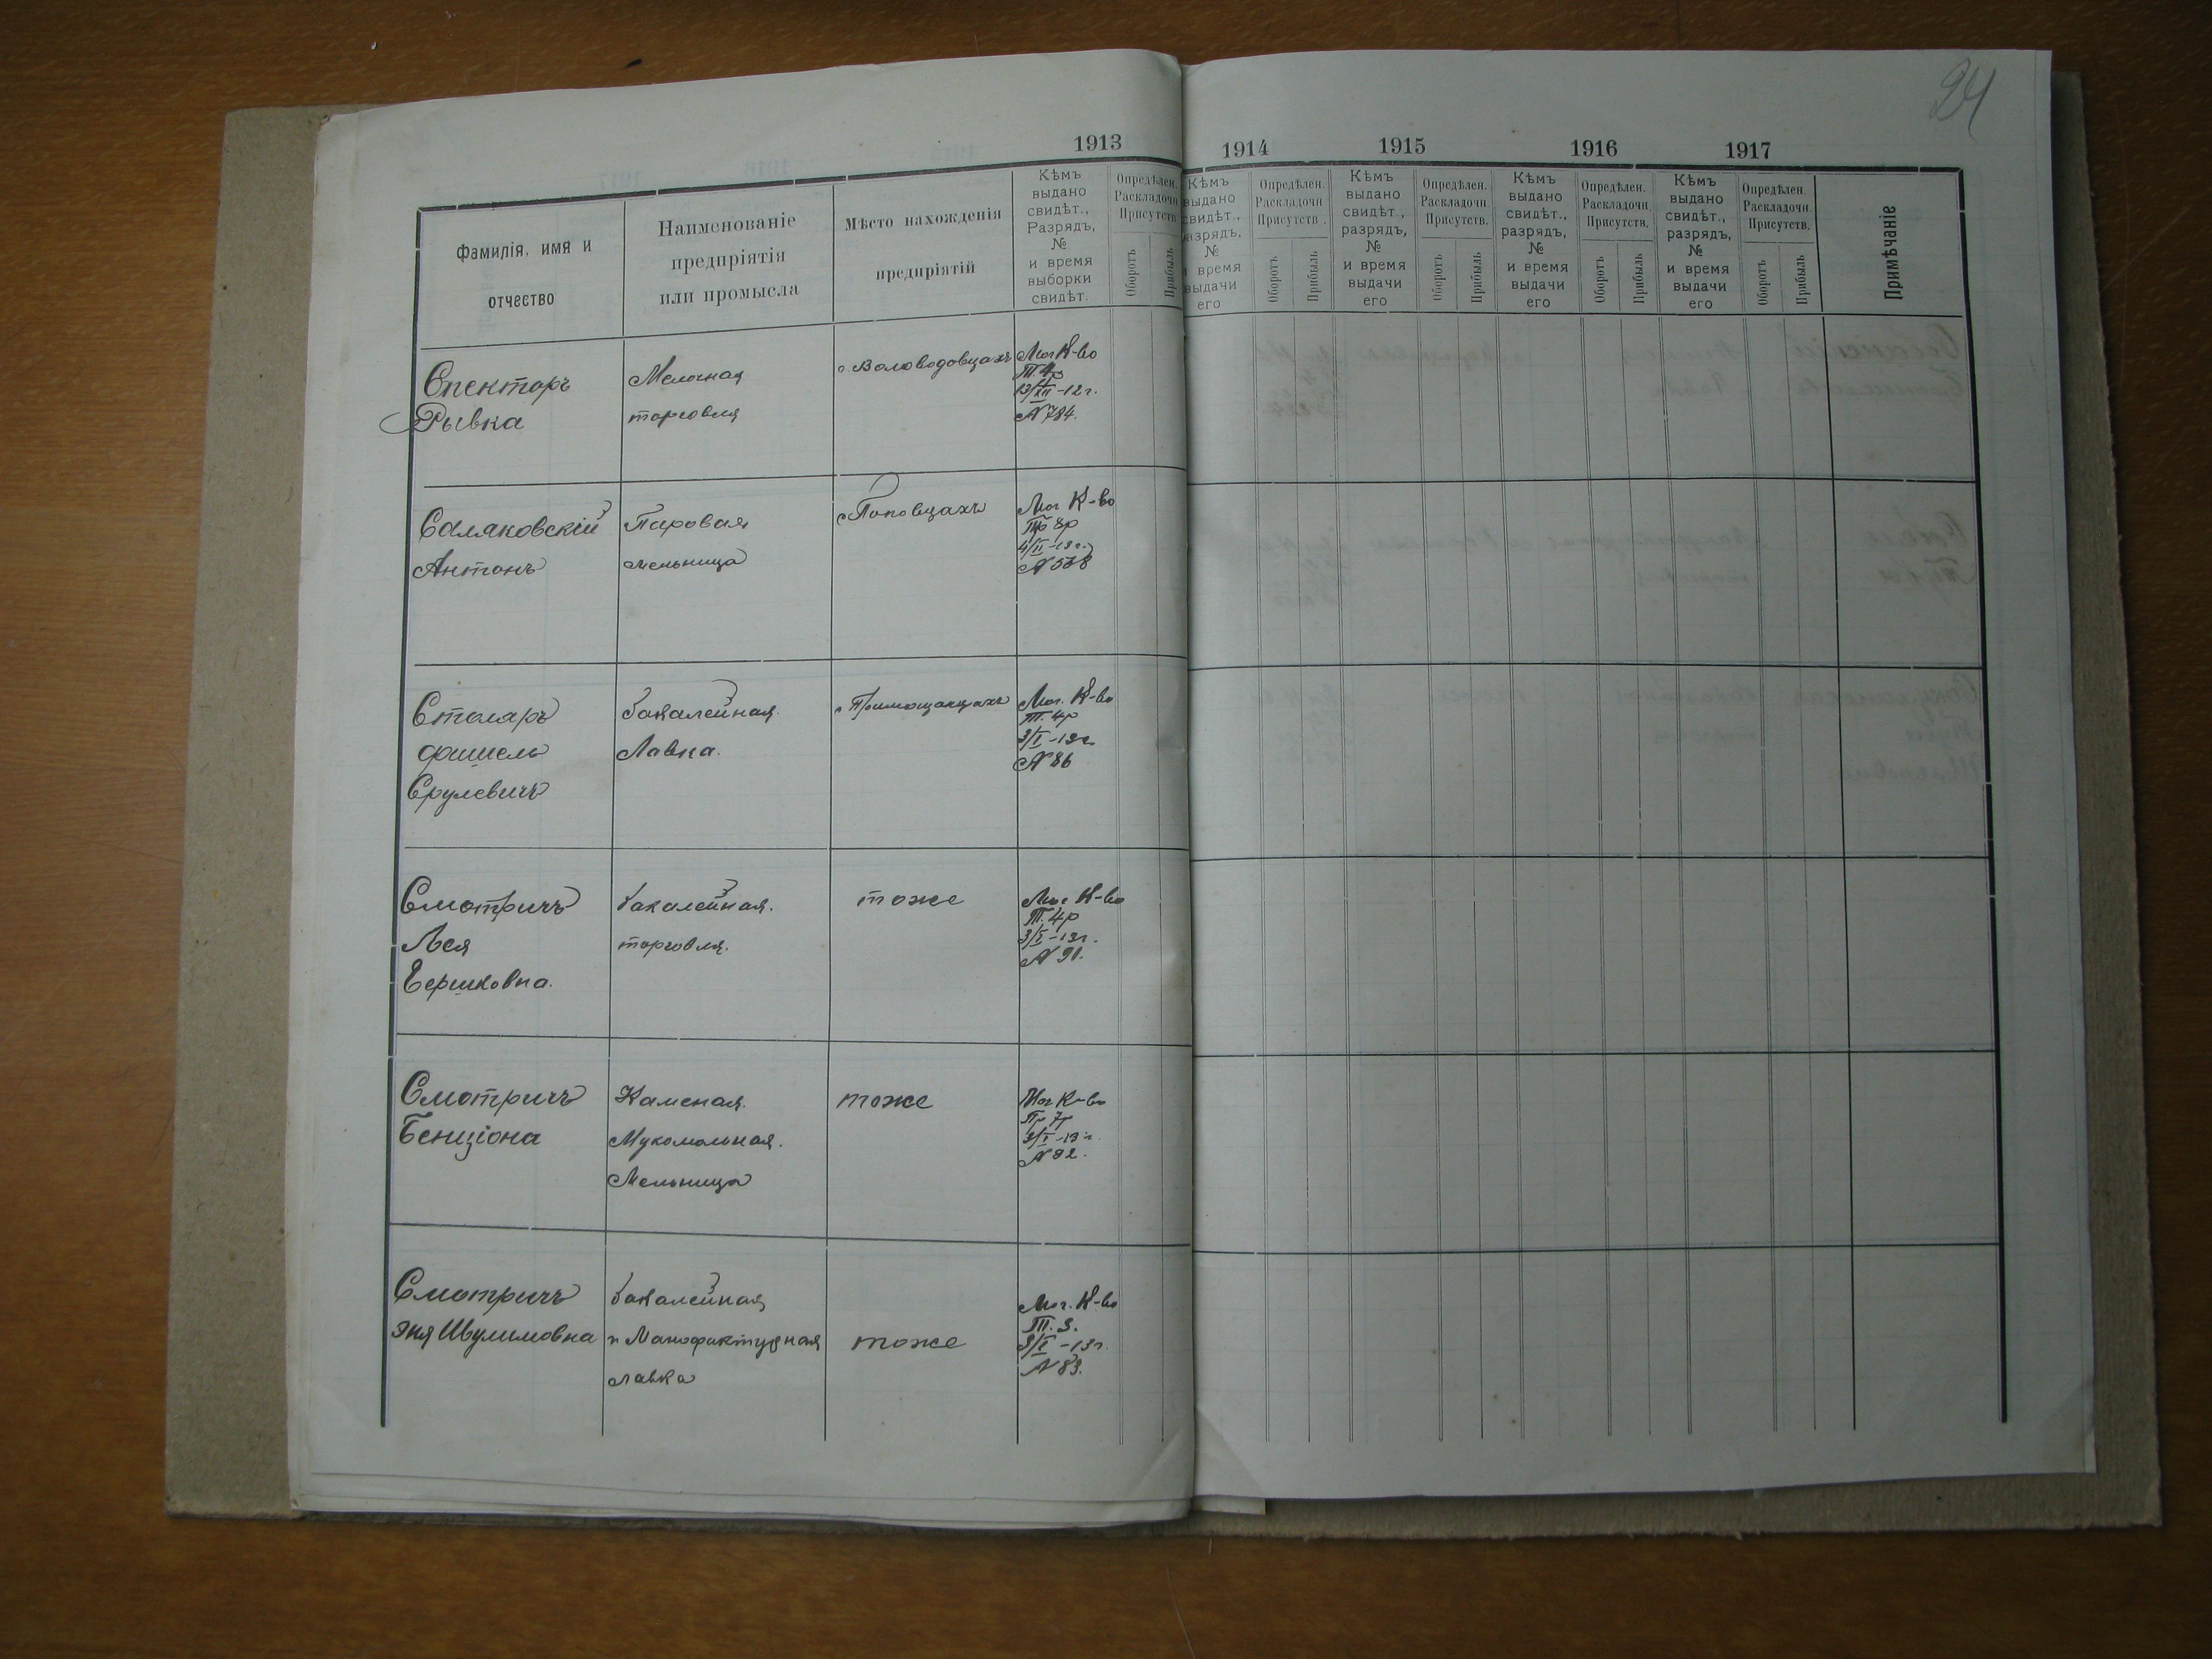 24
1913
1914
1915
1916
1917
Фамилія, имя и
отчество
Наименованіе
предпріятія
или промысла
Мѣсто нахожденія
предпріятій
Кѣмъ
выдано
свидѣт.,
Разрядъ,
№
и время
выборки
свидѣт.
Опредѣлен.
Раскладочн
Присутств
Оборотъ
Прибыль
Кѣмъ
выдано
свидѣт.,
разрядъ,
№
и время
выдачи
его
Опредѣлен.
Раскладочн
Присутств.
Оборотъ
Прибыль
Кѣмъ
выдано
свидѣт.,
разрядъ,
№
и время
выдачи
его
Опредѣлен.
Раскладочн.
Присутств.
Оборотъ
Прибыль
Кѣмъ
выдано
свидѣт.,
разрядъ,
№
и время
выдачи
его
Опредѣлен.
Раскладочн.
Присутств.
Оборотъ
Прибыль
Кѣмъ
выдано
свидѣт.,
разрядъ,
№
и время
выдачи
его
Опредѣлен.
Раскладочн.
Присутств.
Оборотъ
Прибыль
Примѣчаніе
Спекторъ
Рывка
Мелочная
торговля
с Воловодовцахъ
Мог К-во
Т. 4р
13/XII-12 г.
№ 784.
Саляковскій
Антонъ
Паровая
мельница
с Поповцахъ
Мог К-во
Пр 8р
4/II-13 г.
№ 538
Столяръ
Фишель
Срулевичъ
бакалейная
Лавка.
с
Мог. К-во
Т. 4р
3/I-13г
№ 86
Смотричъ
Лея
Гершковна.
бакалейная.
торговля.
тоже
Мог К-во
Т. 4р
3/I-13г.
№ 91.
Смотричъ
Бенціона
Каменая.
Мукомольная.
Мельница
тоже
Мог К-во
Пр 7р
3/I-13 г.
№ 92.
Смотричъ
Эня Шулимовна
бакалейная
и Манофактурная
лавка
тоже
Мог. К-во
Т. 3.
3/I-13г.
№ 83.